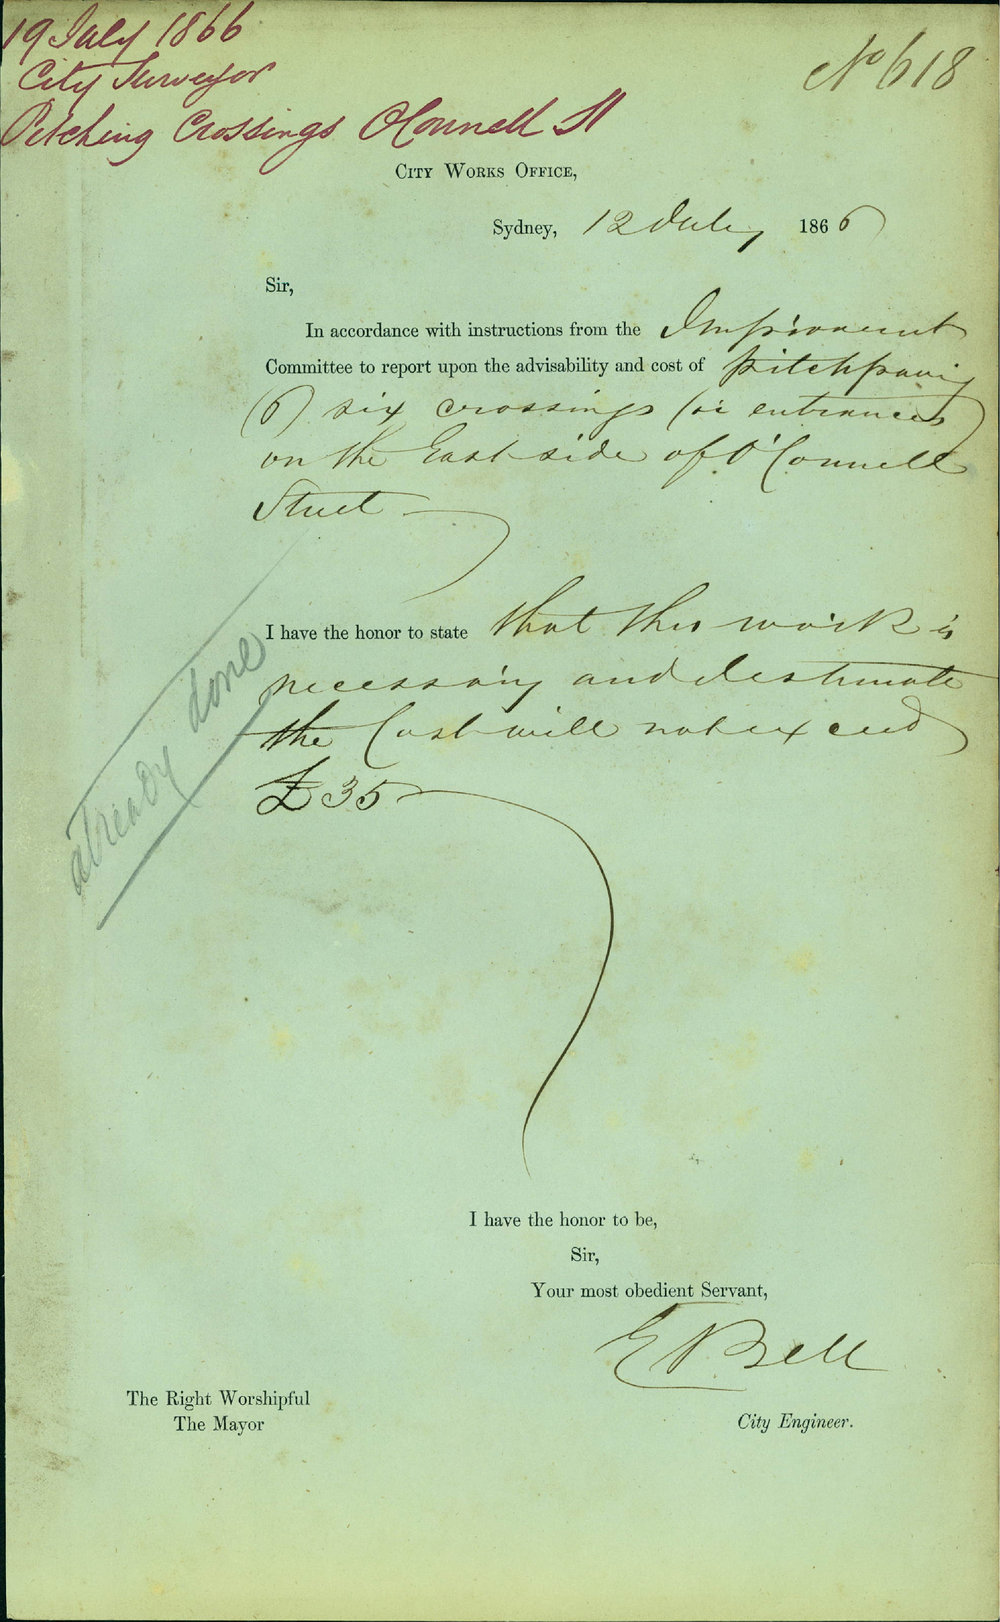 19 July 1866
City Surveyor
Pitching Crossings O'Connell St
No 618
City Works Office,
Sydney, 12 July 1866
Sir,
In accordance with instructions from the Improvement
Committee to report upon the advisability and cost of pitchpaving
(6) six crossings (or entrances)
on the East side of O'Connell
Street
I have the honor to state that this work is
necessary and I estimate
the Cost will not exceed
£35
already done
I have the honor to be,
Sir,
Your most obedient Servant,
E Bell
The Right Worshipful
The Mayor
City Engineer.